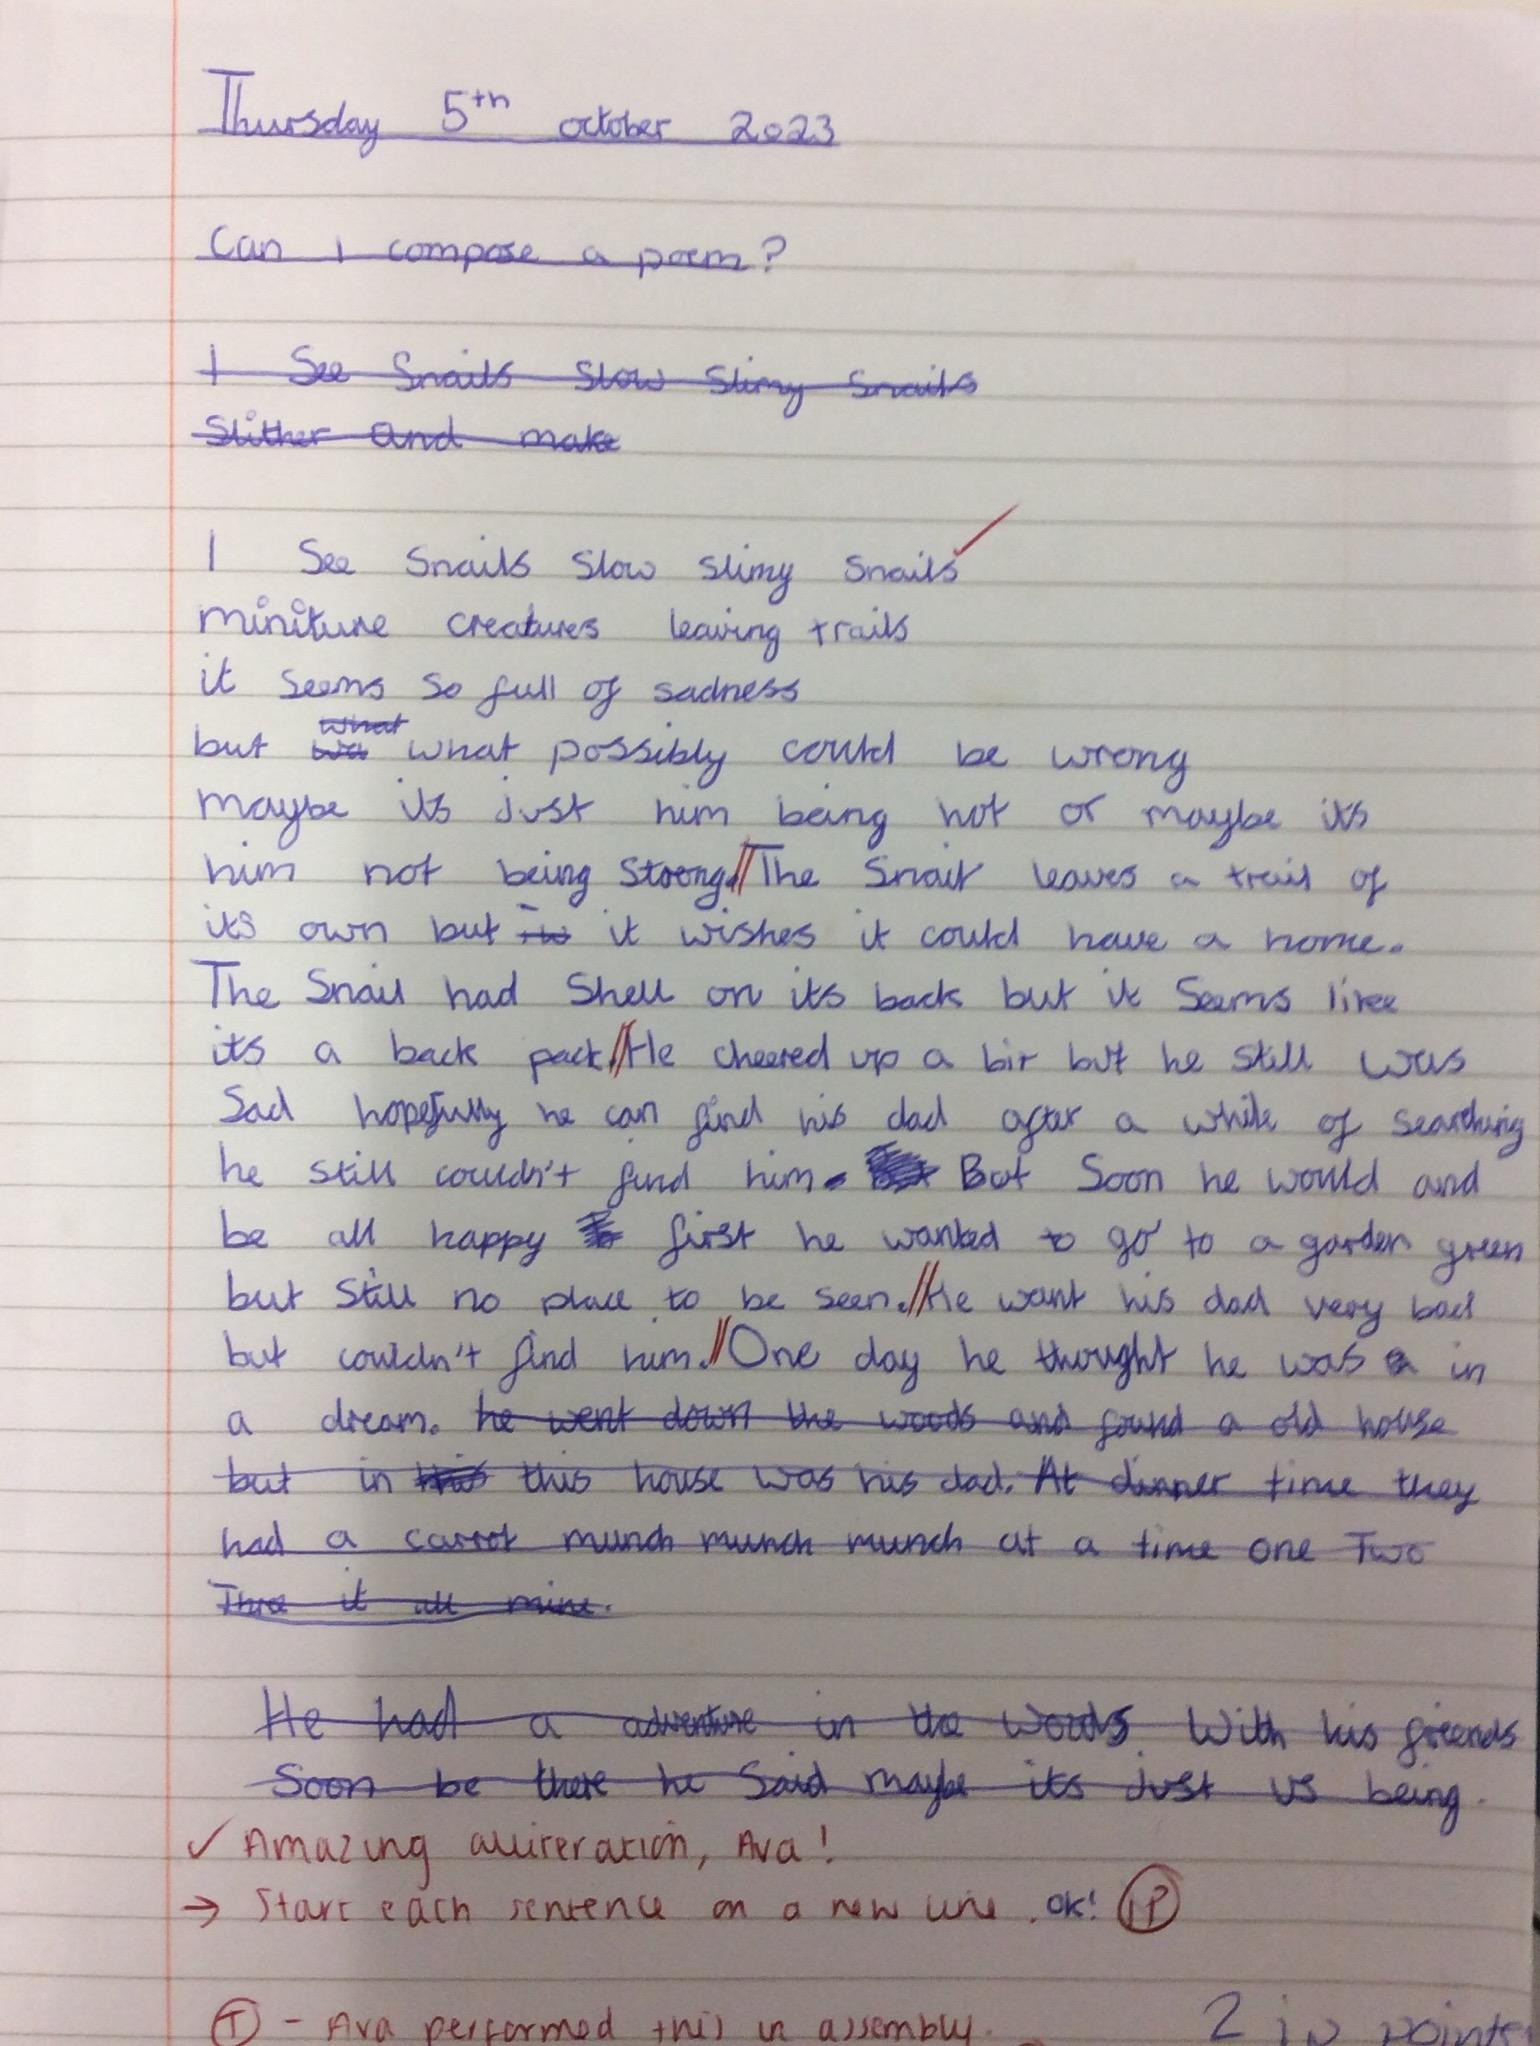 Thursday 5th october 2023
Can I compose a poem?
I See Snails Slow Slimy Snails
Slither and make
I See Snails Slow slimy Snails
miniture creatures leaving trails
it seems so full of sadness
what
but wa what possibly could be wrong
maybe its just him being hot or maybe its
him not being Strong.//The Snail leaves a trail of
its own but it wishes it could have a home.
The Snail had Shell on its back but it Seems like
its a back pack.//He cheered up a bit but he still was
Sad hopefully he can find his dad after a while of searching
he still couldn't find him. But Soon he would and
be all happy first he wanted to go to a garden green
but still no place to be seen.//He want his dad very bad
but couldn't find him.//One day he thought he was a in
a dream. he went down the woods and found a old house
but in this this house was his dad. At dinner time they
had a carrot munch munch munch at a time one Two
Three it all mine.
He had a adventure in the woods With his friends
Soon be there he Said maybe its just us being.
✓ Amazing alliteration, Ava!
→ Start each sentence on a new line. ok! IP
T - Ava performed this in assembly.
2